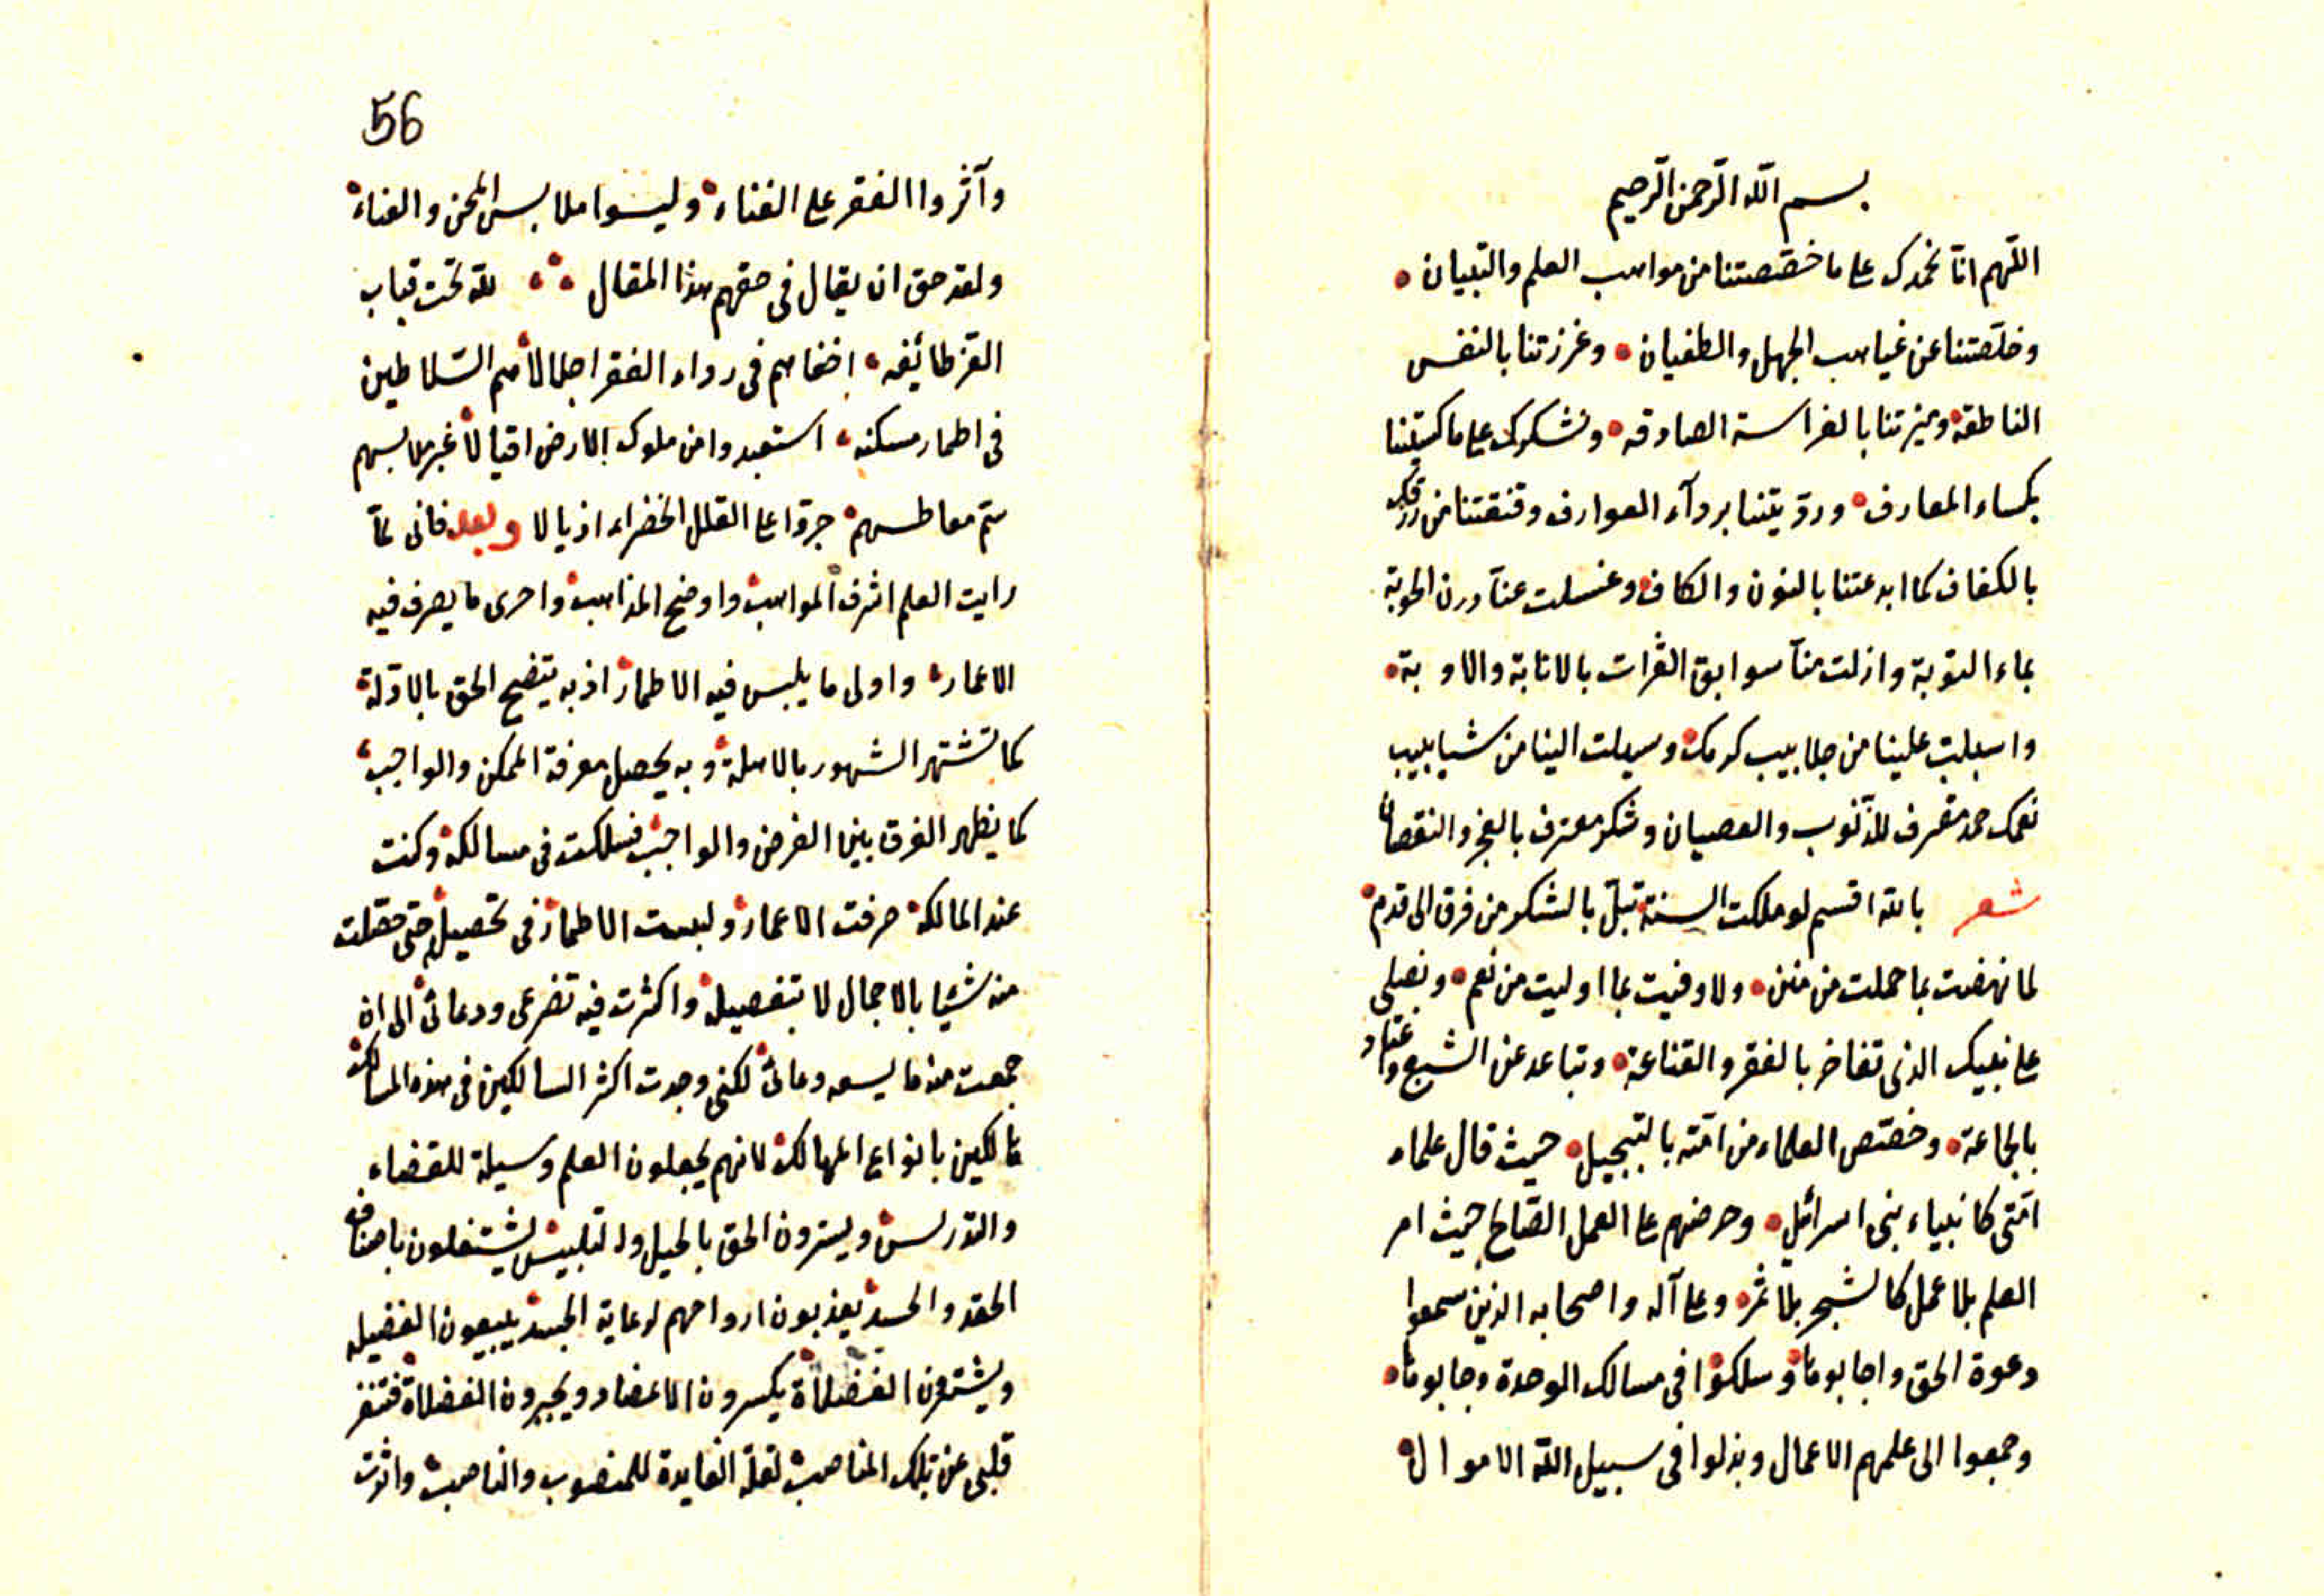 بسم الله الرحمن الرحيم
اللهم انا نحمدك على ما خصصتنا من مواهب العلم والتبيان
وخلصتنا عن غياهب الجهل والطغيان وغرزتنا بالنفس
الناطقة وميزتنا بالفراسة الصادقه ونشكرك على ما كسيتنا
بكساء المعارف ورديتنا بردآء العوارف وقنعتنا من رزقك
بالكفاف كما ابدعتنا بالنون والكاف وغسلت عنا درن الحوبة
بماء التوبة وازلت منا سوابق العثرات بالانابة والاوبة
واسبلت علينا من جلابيب كرمك وسيلت الينا من شيابيب
نعمك حمد مقرف للذنوب والعصيان وشكر معترف بالعجز والنقصان
شعر بالله اقسم لو ملكت السنة تبل بالشكر من فرق الى قدم
لما نهضت بما حملت من منن ولا وفيت بما اوليت من نعم ونصلى
على نبيك الذى تفاخر بالفقر والقناعة وتباعد عن الشبع واعتاد
بالمجاعة وخصص العلماء من امته بالتبجيل حيث قال علماء
امتى كانبياء بنى اسرائيل وحرضهم على العمل الصالح حيث امر
العلم بلا عمل كالشجر بلا ثمر وعلى آله واصحابه الذين سمعوا
دعوة الحق واجابوها وسلكوا فى مسالك الوحدة وجابوها
وجمعوا الى علمهم الاعمال وبذلوا فى سبيل الله الاموال
56
وآثروا الفقر على الغناء ولبسوا ملابس المحن والعناء
ولقد حق ان يقال فى حقهم هذا المقال لله تحت قباب
العز طائفه اخفاهم فى رداء الفقر اجلالا هم السلاطين
فى اطمار مسكنه استعبدوا من ملوك الارض اقيالا غبر ملابسهم
شم معاطسهم جروا على القلل الخضراء اذيالا وبعد فانى لما
رايت العلم اشرف المواهب واوضح المذاهب واحرى ما يصرف فيه
الاعمار واولى ما يلبس فيه الاطمار اذ به يتضح الحق بالادلة
كما تشتهر الشهور بالاهلة وبه يحصل معرفة الممكن والواجب
كما يظهر الفرق بين الفرض والواجب فسلكت فى مسالكه وكنت
عند المالكه صرفت الاعمار ولبست الاطمار فى تحصيله حتى حصلت
منه شيئا بالاجمال لا بتفصيله واكثرت فيه تضرعى ودعائى الى ان
جمعت منه ما يسعه وعائى لكنى وجدت اكثر السالكين فى هذه المسالك
هالكين بانواع المهالك لانهم يجعلون العلم وسيلة للقضاء
والتدريس ويسترون الحق بالحيل والتلبيس يشتغلون باصناف
الحقد والحسد يعذبون ارواحهم لرعاية الجسد يبيعون الفضيله
ويشترون الفضلاة يكسرون الاعضاد ويجبرون الفضلاة فتنفر
قلبى عن تلك المناصب لقلة الفايدة للمنصوب والناصب واثرت